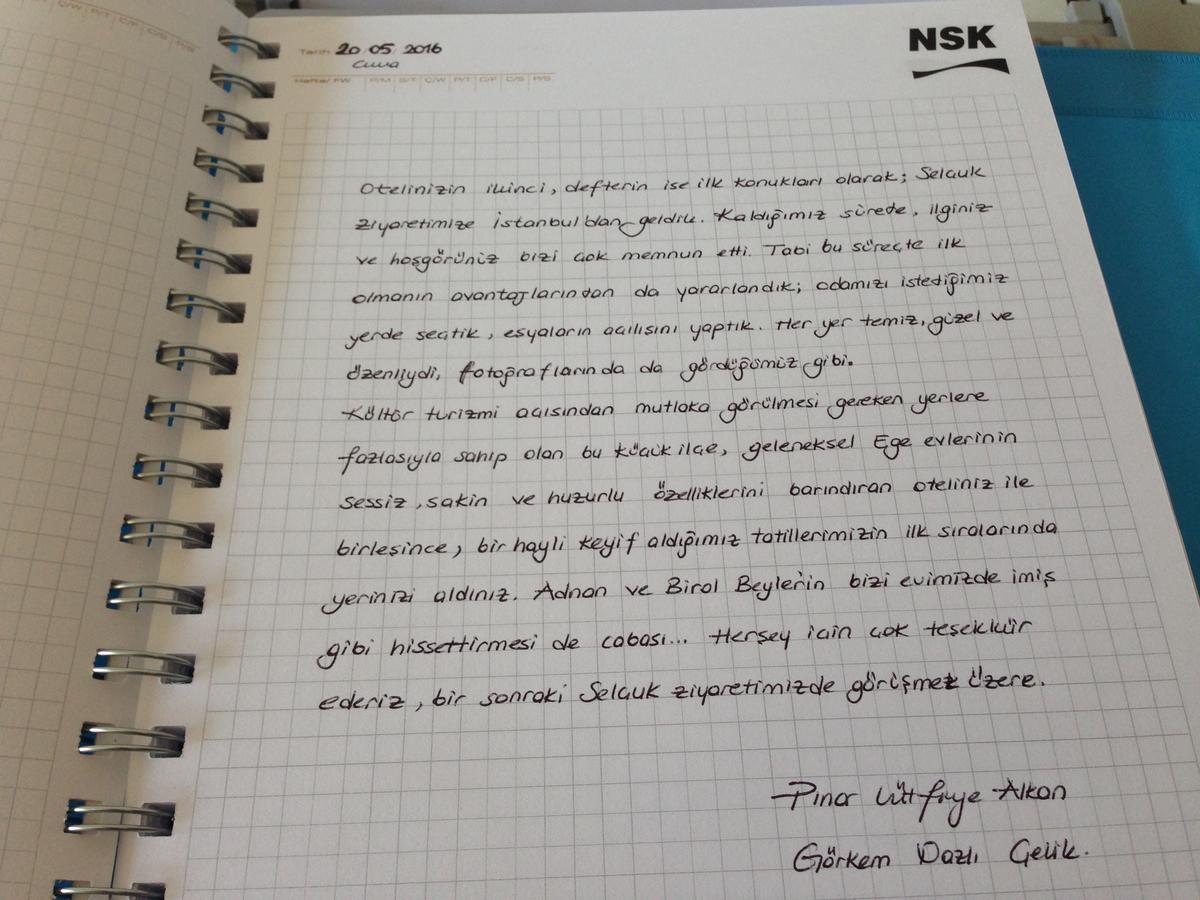 Tarih 20 05 2016
NSK
Cuma
Hafta/ FW P/M S/T C/W P/T C/F C/S P/S
Otelinizin ikinci, defterin ise ilk konukları olarak; Selcuk
ziyaretimize İstanbul'dan geldik. Kaldığımız sürede, ilginiz
ve hoşgörünüz bizi çok memnun etti. Tabi bu süreçte ilk
olmanın avantajlarından da yararlandık; odamızı istediğimiz
yerde seçtik, eşyaların açılışını yaptık. Her yer temiz, güzel ve
özenliydi, fotoğraflarında da gördüğümüz gibi.
Kültür turizmi açısından mutlaka görülmesi gereken yerlere
fazlasıyla sahip olan bu küçük ilçe, geleneksel Ege evlerinin
sessiz, sakin ve huzurlu özelliklerini barındıran oteliniz ile
birleşince, bir hayli keyif aldığımız tatillerimizin ilk sıralarında
yerinizi aldınız. Adnan ve Birol Beyler'in bizi evimizde imiş
gibi hissettirmesi de cabası... Herşey için çok teşekkür
ederiz, bir sonraki Selçuk ziyaretimizde görüşmek üzere.
Pınar Lütfiye Alkan
Görkem Dazlı Çelik.